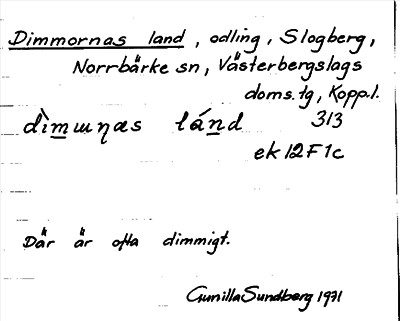 Dimmornas land, odling, Slogberg,
Norrbärke sn, Västerbergslags
doms. tg, Kopp.l.
dìm̲ɯɳæs lán̲d 313
ek 12 F 1c
Där är ofta dimmigt.
Gunilla Sundberg 1971